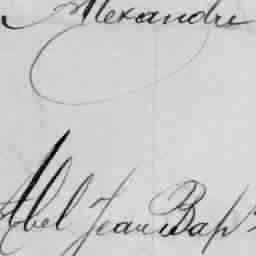 Alexandre
Abel Jean Bapt